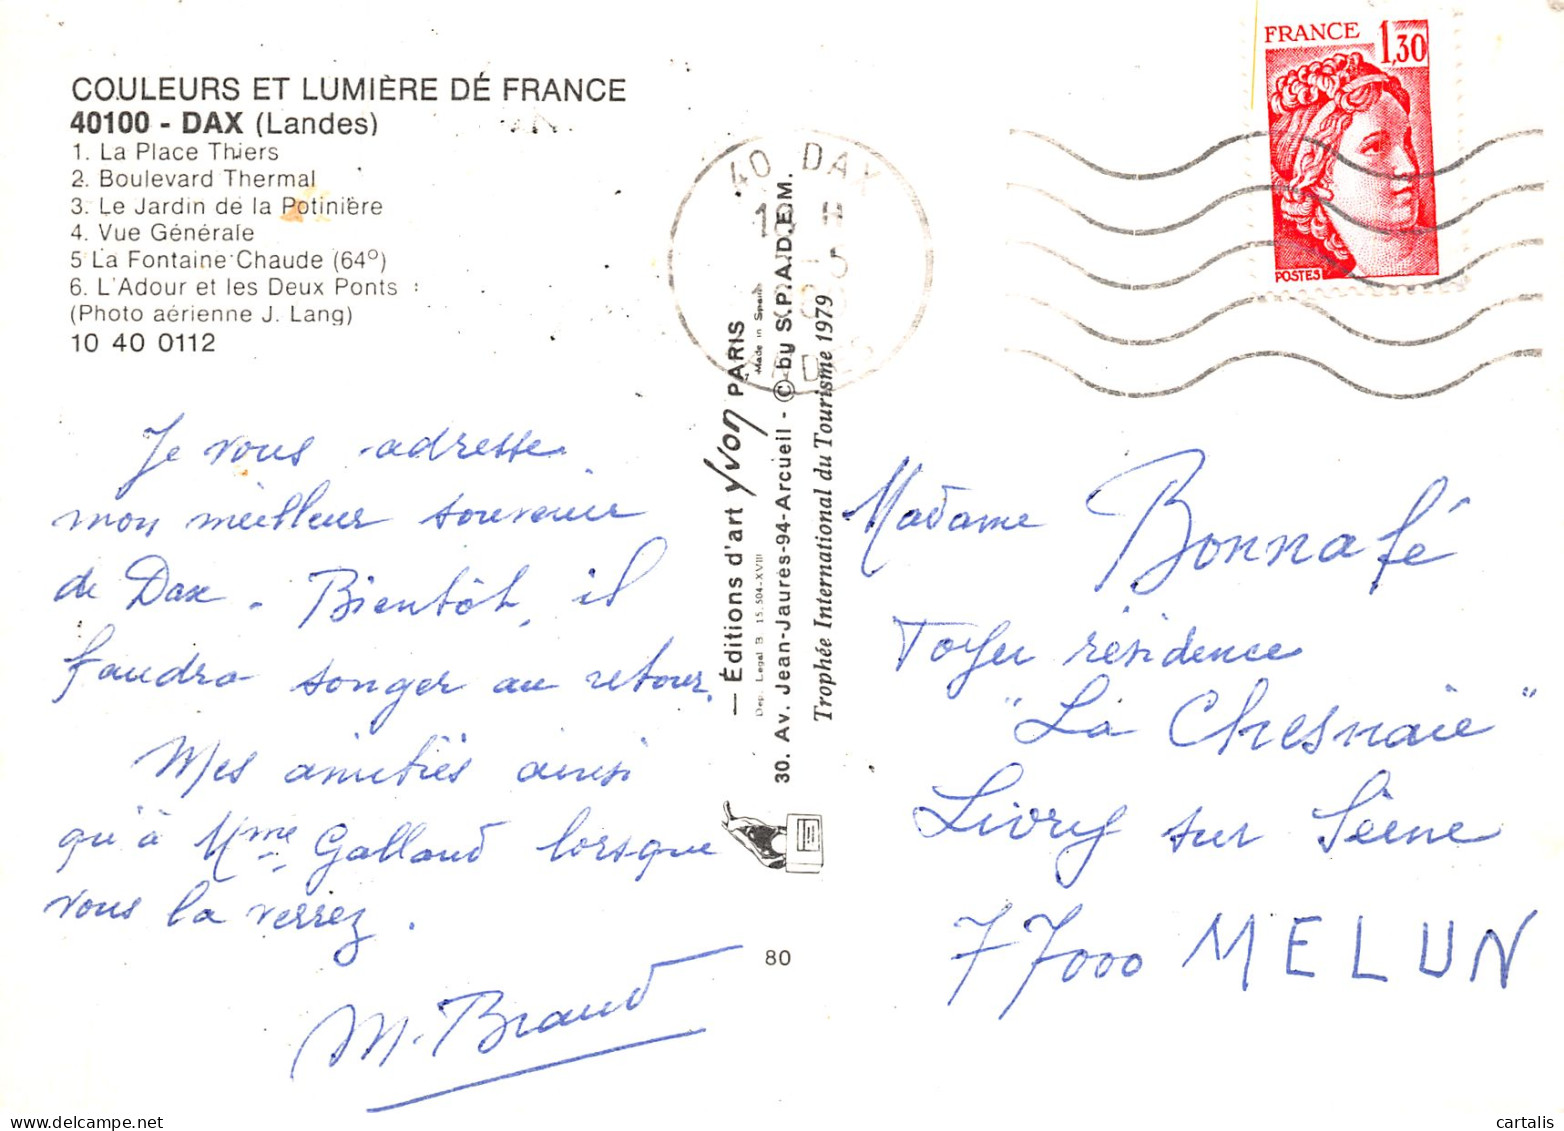 COULEURS ET LUMIÈRE DÉ FRANCE
40100 - DAX (Landes)
1. La Place Thiers
2. Boulevard Thermal
3. Le Jardin de la Potinière
4. Vue Générale
5 La Fontaine Chaude (64º)
6. L'Adour et les Deux Ponts
(Photo aérienne J. Lang)
10 40 0112
Je vous adresse
mon meilleur souvenir
de Dax. Bientôt, il
faudra songer au retour.
Mes amitiés ainsi
qu'à Mme Galland lorsque
vous la verrez.
M. Braud
— Éditions d'art yvon PARIS
Dep. Legal B 15.504-XVIII
Made in Spain
30. Av. Jean-Jaurès-94-Arcueil - © by S.P.A.D.E.M.
Trophée International du Tourisme 1979
80
40 DAX
FRANCE 1,30
POSTES
Madame Bonnafé
Foyer résidence
"La Chesnaie"
Livry sur Seine
77000 MELUN
cartalis